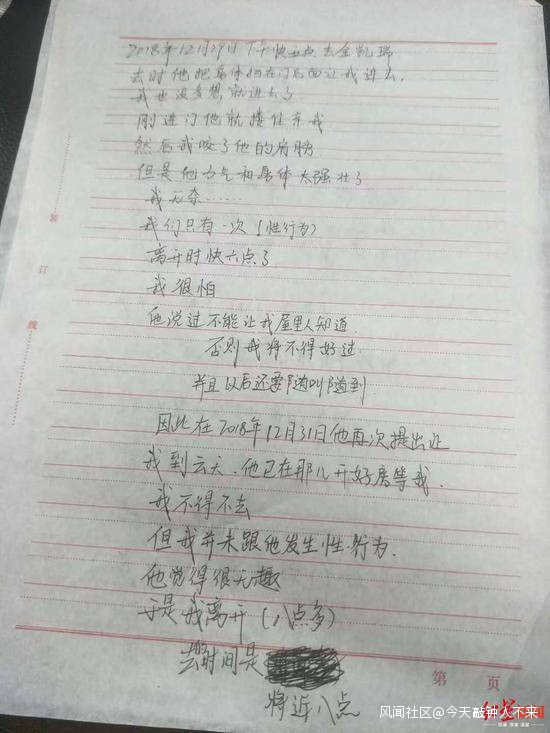 2018年12月29日下午快五点去金凯瑞
去时他把身体掩在门后面让我进去.
我也没多想就进去了
刚进门他就搂住亲我
然后我咬了他的肩膀
但是他力气和身体太强壮了
我无奈……
我们只有一次(性行为)
离开时快六点了
我很怕
他说过不能让我屋里人知道.
否则我将不得好过.
并且以后还要随叫随到.
因此在2018年12月31日他再次提出让
我到云天.他已在那儿开好房等我.
我不得不去
但我并未跟他发生性行为.
他觉得很无趣
于是我离开(八点多)
去时间是
将近八点
装
订
线
第 页
风闻社区@今天敲钟人不来